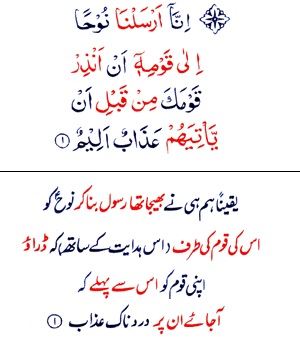 اِنَّاۤ اَرْسَلْنَا نُوْحًا
اِلٰى قَوْمِهٖۤ اَنْ اَنْذِرْ
قَوْمَكَ مِنْ قَبْلِ اَنْ
يَّاْتِيَهُمْ عَذَابٌ اَلِيْمٌ ۱
یقیناً ہم ہی نے بھیجا تھا رسول بنا کر نوحؑ کو
اس کی قوم کی طرف (اس ہدایت کے ساتھ) کہ ڈراؤ
اپنی قوم کو اس سے پہلے کہ
آجائے ان پر دردناک عذاب ۱